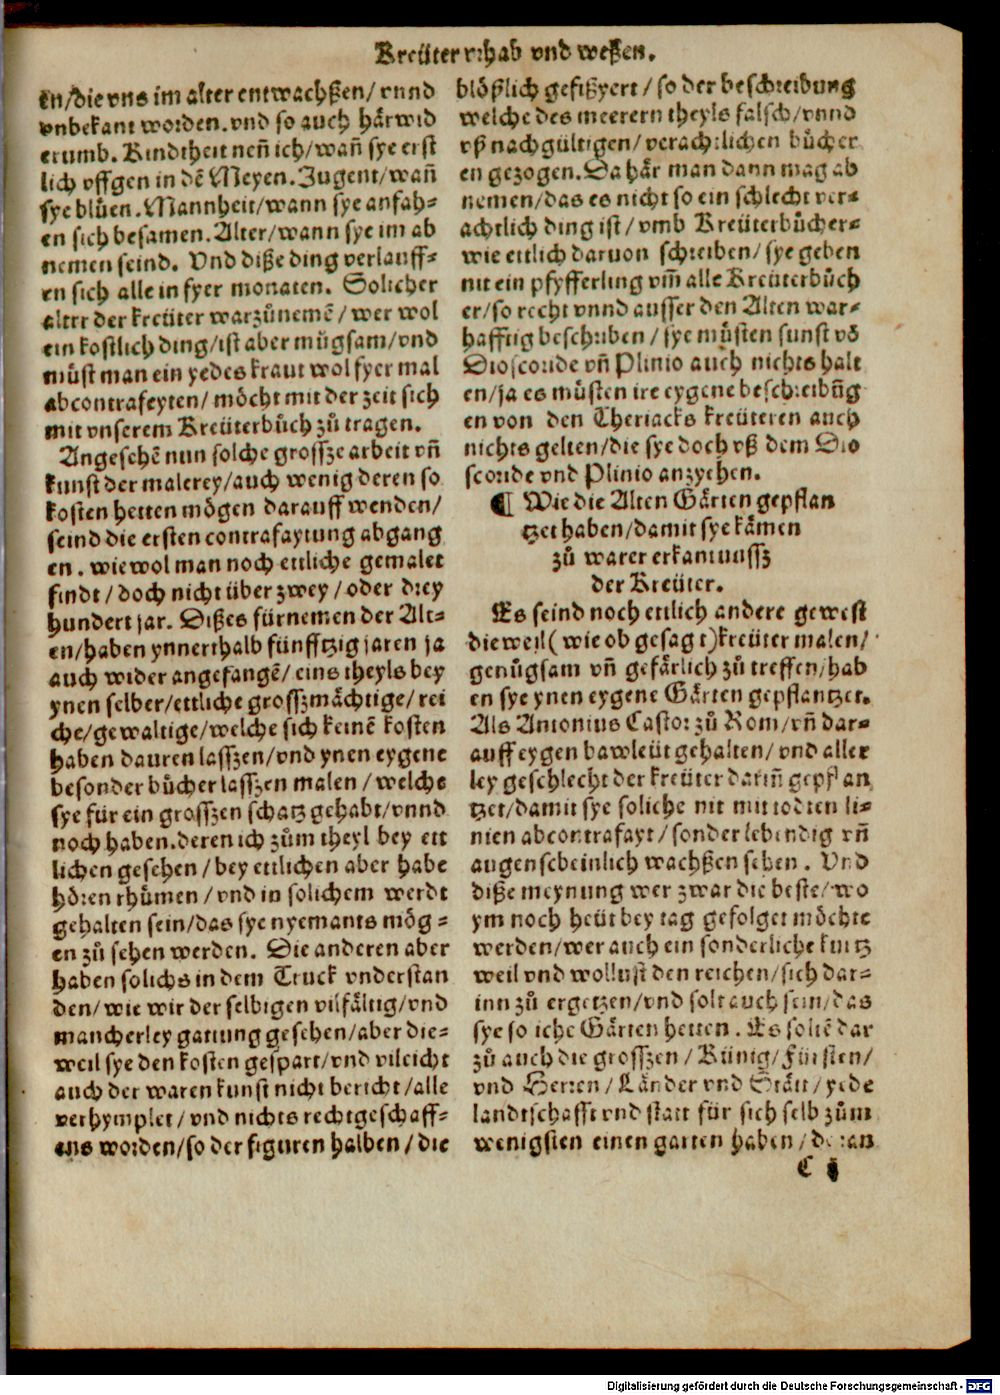 Kreüter urhab vnd weßen.
en/die vns im alter entwachßen/ vnnd
vnbekant worden. vnd so auch härwid
erumb. Kindtheit neñ ich/wañ sye erst
lich vffgen in dē Meyen. Jugent/wañ
sye blůen. Mannheit/wann sye anfah⸗
en sich besamen. Alter/wann sye im ab
nemen seind. Vnd diße ding verlauff⸗
en sich alle in fyer monaten. Solicher
alter der kreüter warzůnemē/wer wol
ein kostlich ding/ist aber mügsam/vnd
müst man ein yedes kraut wol fyer mal
abcontrafeyten/ möcht mit der zeit sich
mit vnserem Kreüterbůch zů tragen.
Angesehē nun solche grossze arbeit vñ
kunst der malerey/auch wenig deren so
kosten hetten mögen darauff wenden/
seind die ersten contrafaytung abgang
en. wiewol man noch ettliche gemalet
findt/doch nicht über zwey/oder drey
hundert jar. Dißes fürnemen der Alt⸗
en/haben ynnerthalb fünfftzig jaren ja
auch wider angefangē/ eins theyls bey
ynen selber/ettliche grosszmächtige/rei
che/gewaltige/welche sich keinē kosten
haben dauren lasszen/vnd ynen eygene
besonder bůcher lasszen malen/welche
sye für ein grosszen schatz gehabt/vnnd
noch haben.deren ich zům theyl bey ett
lichen gesehen/bey ettlichen aber habe
hören rhümen/vnd in solichem werdt
gehalten sein/das sye nyemants mög⸗
en zů sehen werden. Die anderen aber
haben solichs in dem Truck vnderstan
den/wie wir der selbigen vilfältig/vnd
mancherley gattung gesehen/aber die⸗
weil sye den kosten gespart/vnd vileicht
auch der waren kunst nicht bericht/alle
verhymplet/vnd nichts rechtgeschaff⸗
ens worden/so der figuren halben/die
blößlich gefißyert/so der beschreibung
welche des meerern theyls falsch/vnnd
vß nachgültigen/verachtlichen bůcher
en gezogen. Da här man dann mag ab
nemen/das es nicht so ein schlecht ver⸗
achtlich ding ist/vmb Kreüterbůcher⸗
wie ettlich daruon schreiben/sye geben
nit ein pfyfferling vm̃ alle Kreüterbůch
er/so recht vnnd ausser den Alten war⸗
hafftig beschriben/sye müsten sunst vō
Dioscoride vñ Plinio auch nichts halt
en/ja es müsten ire eygene beschreibūg
en von den Theriacks kreüteren auch
nichts gelten/die sye doch vß dem Dio
scoride vnd Plinio anzyehen.
¶ Wie die Alten Gärten gepflan
tzet haben/damit sye kämen
zů warer erkantnussz
der Kreüter.
Es seind noch ettlich andere gewest
dieweil (wie ob gesagt) kreüter malen/
genügsam vñ gefärlich zů treffen/hab
en sye ynen eygene Gärten gepflantzet.
Als Antonius Castor zů Rom/vñ dar⸗
auff eygen bawleüt gehalten/vnd aller
ley geschlecht der kreüter dariñ gepflan
tzet/damit sye soliche nit mit todten li⸗
nien abcontrafayt/sonder lebendig vñ
augenscheinlich wachßen sehen. Vnd
diße meynung wer zwar die beste/wo
ym noch heüt bey tag gefolget möchte
werden/wer auch ein sonderliche kurtz
weil vnd wollust den reichen/sich dar⸗
inn zů ergetzen/vnd solt auch sein/das
sye soliche Gärten hetten. Es soltē dar
zů auch die grosszen/Künig/Fürsten/
vnd Herren/Länder vnd Stätt/yede
landtschafft vnd statt für sich selb zům
wenigsten einen garten haben/daran
C j
Digitalisierung gefördert durch die Deutsche Forschungsgemeinschaft - DFG